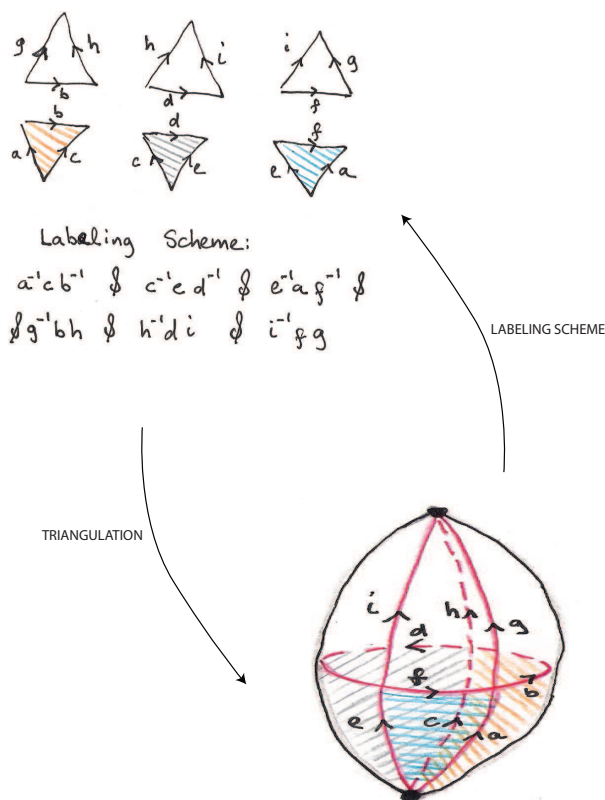 g h h i i g
b d f
b d f
a c c e e a
Labeling Scheme:
a⁻¹cb⁻¹ & c⁻¹ed⁻¹ & e⁻¹af⁻¹ &
& g⁻¹bh & h⁻¹di & i⁻¹fg
LABELING SCHEME
TRIANGULATION
i h g
d
f b
e c a